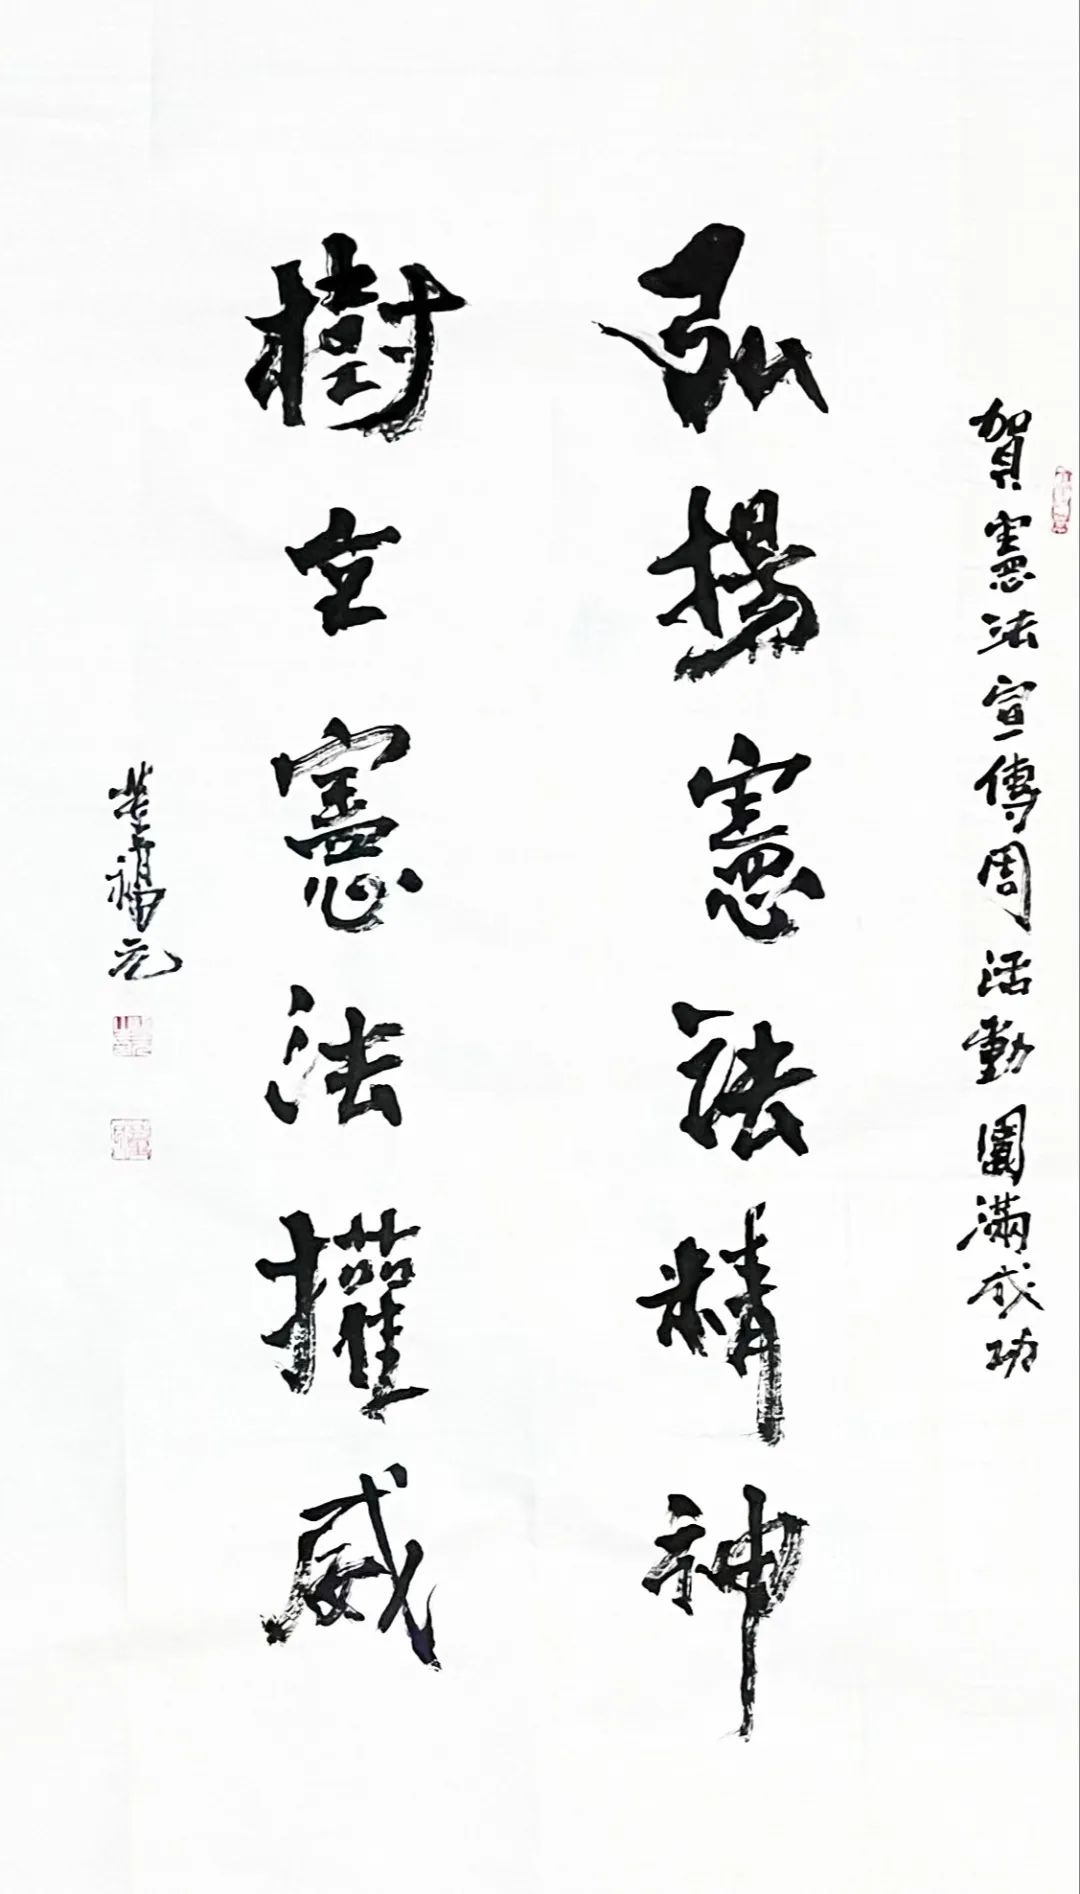 賀憲法宣傳周活動圓滿成功
弘揚憲法精神
樹立憲法權威
福元